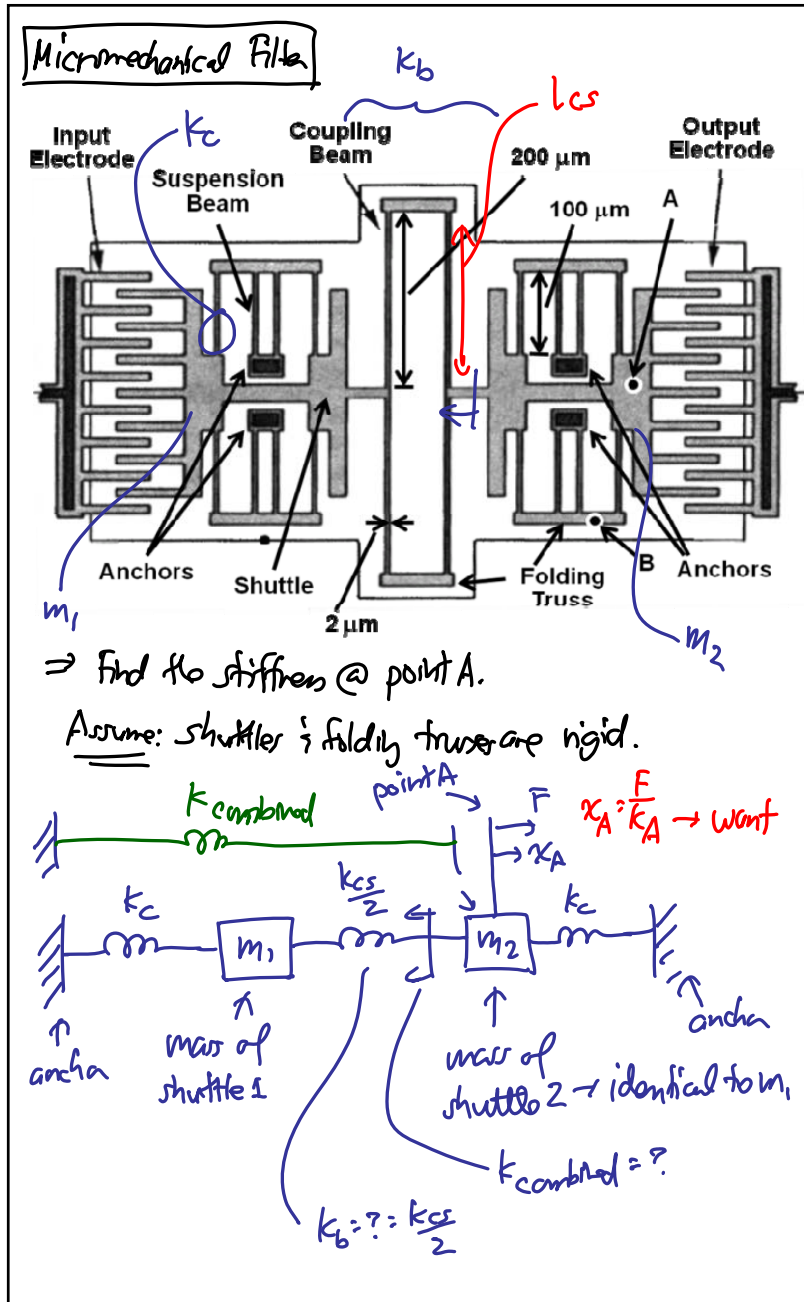 Micromechanical Filter
k_b
l_cs
k_c
Input Electrode
Coupling Beam
200 μm
Output Electrode
Suspension Beam
100 μm
A
Anchors
Shuttle
2 μm
Folding Truss
B
Anchors
m_1
m_2
⇒ Find the stiffness @ point A.
Assume: shuttles & folding trusses are rigid.
k_combined
point A
F
x_A
x_A = F/k_A → want
k_c
m_1
k_cs/2
m_2
k_c
anchor
mass of shuttle 1
mass of shuttle 2 → identical to m_1
anchor
k_combined = ?
k_b = ? = k_cs/2